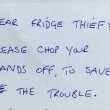 EAR FRIDGE THIEF,
EASE CHOP YOUR
ANDS OFF, TO SAVE
E THE TROUBLE.